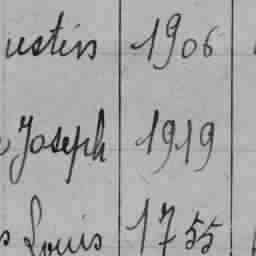 ustin 1906
Joseph 1919
s Louis 1755